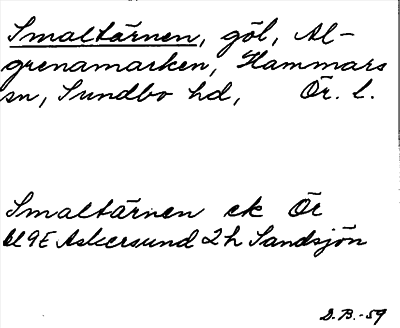 Smaltärnen, göl, Al-
grenamarken, Hammars
sn, Sundbo hd, Ör. l.
Smaltärnen ek Ör
9E Askersund 2h Sandsjön
D.B.-59